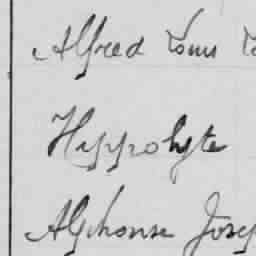 Alfred Louis
Hyppolyte
Alphonse Josep